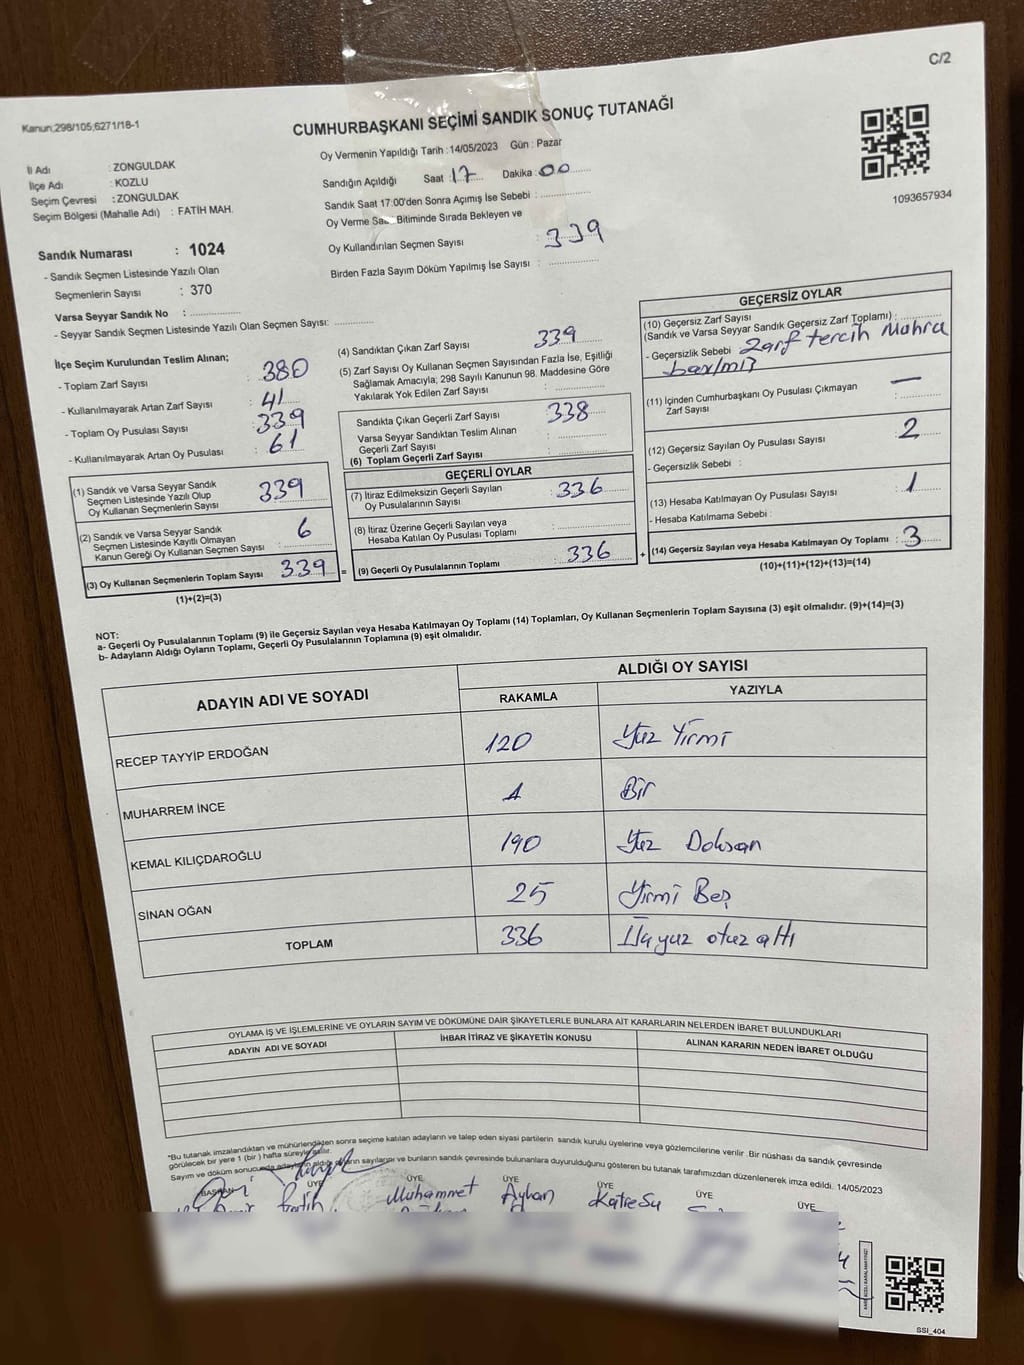 C/2
Kanun;298/105;6271/18-1
CUMHURBAŞKANI SEÇİMİ SANDIK SONUÇ TUTANAĞI
1093657934
İl Adı : ZONGULDAK
İlçe Adı : KOZLU
Seçim Çevresi : ZONGULDAK
Seçim Bölgesi (Mahalle Adı) : FATİH MAH.
Oy Vermenin Yapıldığı Tarih : 14/05/2023 Gün : Pazar
Sandığın Açıldığı Saat 17 Dakika : 00
Sandık Saat 17:00'den Sonra Açımış İse Sebebi :
Oy Verme Saa Bitiminde Sırada Bekleyen ve
Oy Kullandırılan Seçmen Sayısı : 339
Birden Fazla Sayım Döküm Yapılmış İse Sayısı :
Sandık Numarası : 1024
- Sandık Seçmen Listesinde Yazılı Olan
Seçmenlerin Sayısı : 370
Varsa Seyyar Sandık No :
- Seyyar Sandık Seçmen Listesinde Yazılı Olan Seçmen Sayısı:
İlçe Seçim Kurulundan Teslim Alınan;
- Toplam Zarf Sayısı : 380
- Kullanılmayarak Artan Zarf Sayısı : 41
- Toplam Oy Pusulası Sayısı : 339
- Kullanılmayarak Artan Oy Pusulası : 61
(1) Sandık ve Varsa Seyyar Sandık
Seçmen Listesinde Yazılı Olup
Oy Kullanan Seçmenlerin Sayısı : 339
(2) Sandık ve Varsa Seyyar Sandık
Seçmen Listesinde Kayıtlı Olmayan
Kanun Gereği Oy Kullanan Seçmen Sayısı : 6
(3) Oy Kullanan Seçmenlerin Toplam Sayısı : 339 =
(1)+(2)=(3)
(4) Sandıktan Çıkan Zarf Sayısı : 339
(5) Zarf Sayısı Oy Kullanan Seçmen Sayısından Fazla İse, Eşitliği
Sağlamak Amacıyla; 298 Sayılı Kanunun 98. Maddesine Göre
Yakılarak Yok Edilen Zarf Sayısı :
Sandıkta Çıkan Geçerli Zarf Sayısı : 338
Varsa Seyyar Sandıktan Teslim Alınan
Geçerli Zarf Sayısı :
(6) Toplam Geçerli Zarf Sayısı :
GEÇERLİ OYLAR
(7) İtiraz Edilmeksizin Geçerli Sayılan
Oy Pusulalarının Sayısı : 336
(8) İtiraz Üzerine Geçerli Sayılan veya
Hesaba Katılan Oy Pusulası Toplamı :
(9) Geçerli Oy Pusulalarının Toplamı : 336 +
GEÇERSİZ OYLAR
(10) Geçersiz Zarf Sayısı
(Sandık ve Varsa Seyyar Sandık Geçersiz Zarf Toplamı) :
- Geçersizlik Sebebi : Zarf tercih
(11) İçinden Cumhurbaşkanı Oy Pusulası Çıkmayan
Zarf Sayısı : —
(12) Geçersiz Sayılan Oy Pusulası Sayısı : 2
- Geçersizlik Sebebi :
(13) Hesaba Katılmayan Oy Pusulası Sayısı : 1
- Hesaba Katılmama Sebebi :
(14) Geçersiz Sayılan veya Hesaba Katılmayan Oy Toplamı : 3
(10)+(11)+(12)+(13)=(14)
NOT:
a- Geçerli Oy Pusulalarının Toplamı (9) ile Geçersiz Sayılan veya Hesaba Katılmayan Oy Toplamı (14) Toplamları, Oy Kullanan Seçmenlerin Toplam Sayısına (3) eşit olmalıdır. (9)+(14)=(3)
b- Adayların Aldığı Oyların Toplamı, Geçerli Oy Pusulalarının Toplamına (9) eşit olmalıdır.
ADAYIN ADI VE SOYADI ALDIĞI OY SAYISI
RAKAMLA YAZIYLA
RECEP TAYYİP ERDOĞAN 120 Yüz Yirmi
MUHARREM İNCE 1 Bir
KEMAL KILIÇDAROĞLU 190 Yüz Doksan
SİNAN OĞAN 25 Yirmi Beş
TOPLAM 336 otuz altı
OYLAMA İŞ VE İŞLEMLERİNE VE OYLARIN SAYIM VE DÖKÜMÜNE DAİR ŞİKAYETLERLE BUNLARA AİT KARARLARIN NELERDEN İBARET BULUNDUKLARI
ADAYIN ADI VE SOYADI İHBAR İTİRAZ VE ŞİKAYETİN KONUSU ALINAN KARARIN NEDEN İBARET OLDUĞU
*Bu tutanak imzalandıktan ve mühürlendikten sonra seçime katılan adayların ve talep eden siyasi partilerin sandık kurulu üyelerine veya gözlemcilerine verilir. Bir nüshası da sandık çevresinde
görülecek bir yere 1 (bir) hafta süreyle asılır.
Sayım ve döküm sonucunda adayların aldığı oyların sayılarını ve bunların sandık çevresinde bulunanlara duyurulduğunu gösteren bu tutanak tarafımızdan düzenlenerek imza edildi. 14/05/2023
BAŞKAN ÜYE ÜYE ÜYE ÜYE ÜYE ÜYE
Fatih Muhammet Ayhan
SSI_404